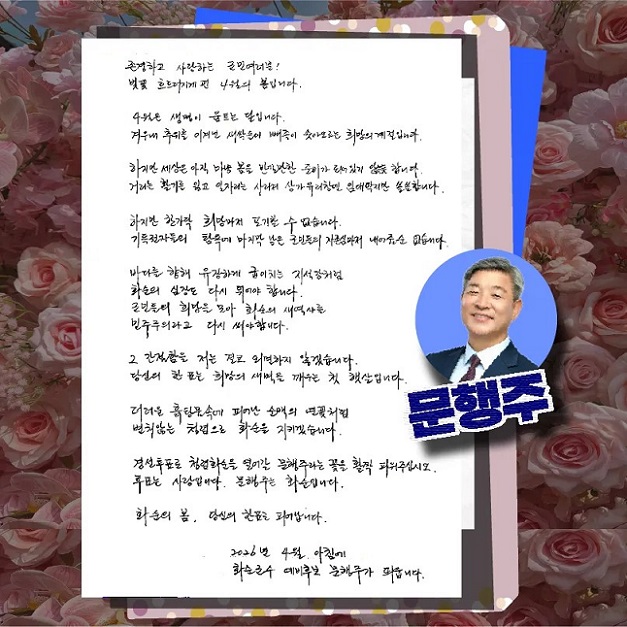 존경하고 사랑하는 군민여러분!
벚꽃 흐드러지게 핀 4월의 봄입니다.
4월은 생명이 움트는 달입니다.
겨우내 추위를 이겨낸 새싹들이 빼죽이 솟아오르는 희망의 계절입니다.
하지만 세상은 아직 마냥 봄을 만끽할 준비가 되어있지 않은 듯 합니다.
거리는 활기를 잃고 일자리는 사라져 상가 유리창엔 임대딱지만 쓸쓸합니다.
하지만 한가닥 희망까지 포기할 수 없습니다.
기득권자들의 탐욕에 마지막 남은 군민들의 자존까지 내어줄순 없습니다.
바다를 향해 유장하게 굽이치는 지석강처럼
화순의 심장도 다시 뛰어야 합니다.
군민들의 희망을 모아 화순의 새역사를
민주주의라고 다시 써야합니다.
그 간절함을 저는 결코 외면하지 않겠습니다.
당신의 한 표는 희망의 새벽을 깨우는 첫 햇살입니다.
더러운 흙탕물속에 피어난 순백의 연꽃처럼
변치않는 청렴으로 화순을 지키겠습니다.
경선투표로 청렴화순을 열어갈 문행주라는 꽃을 활짝 피워주십시오.
투표는 사랑입니다. 문행주는 화순입니다.
화순의 봄, 당신의 한표로 피어납니다.
2026년 4월 아침에
화순군수 예비후보 문행주가 띄웁니다.
문행주